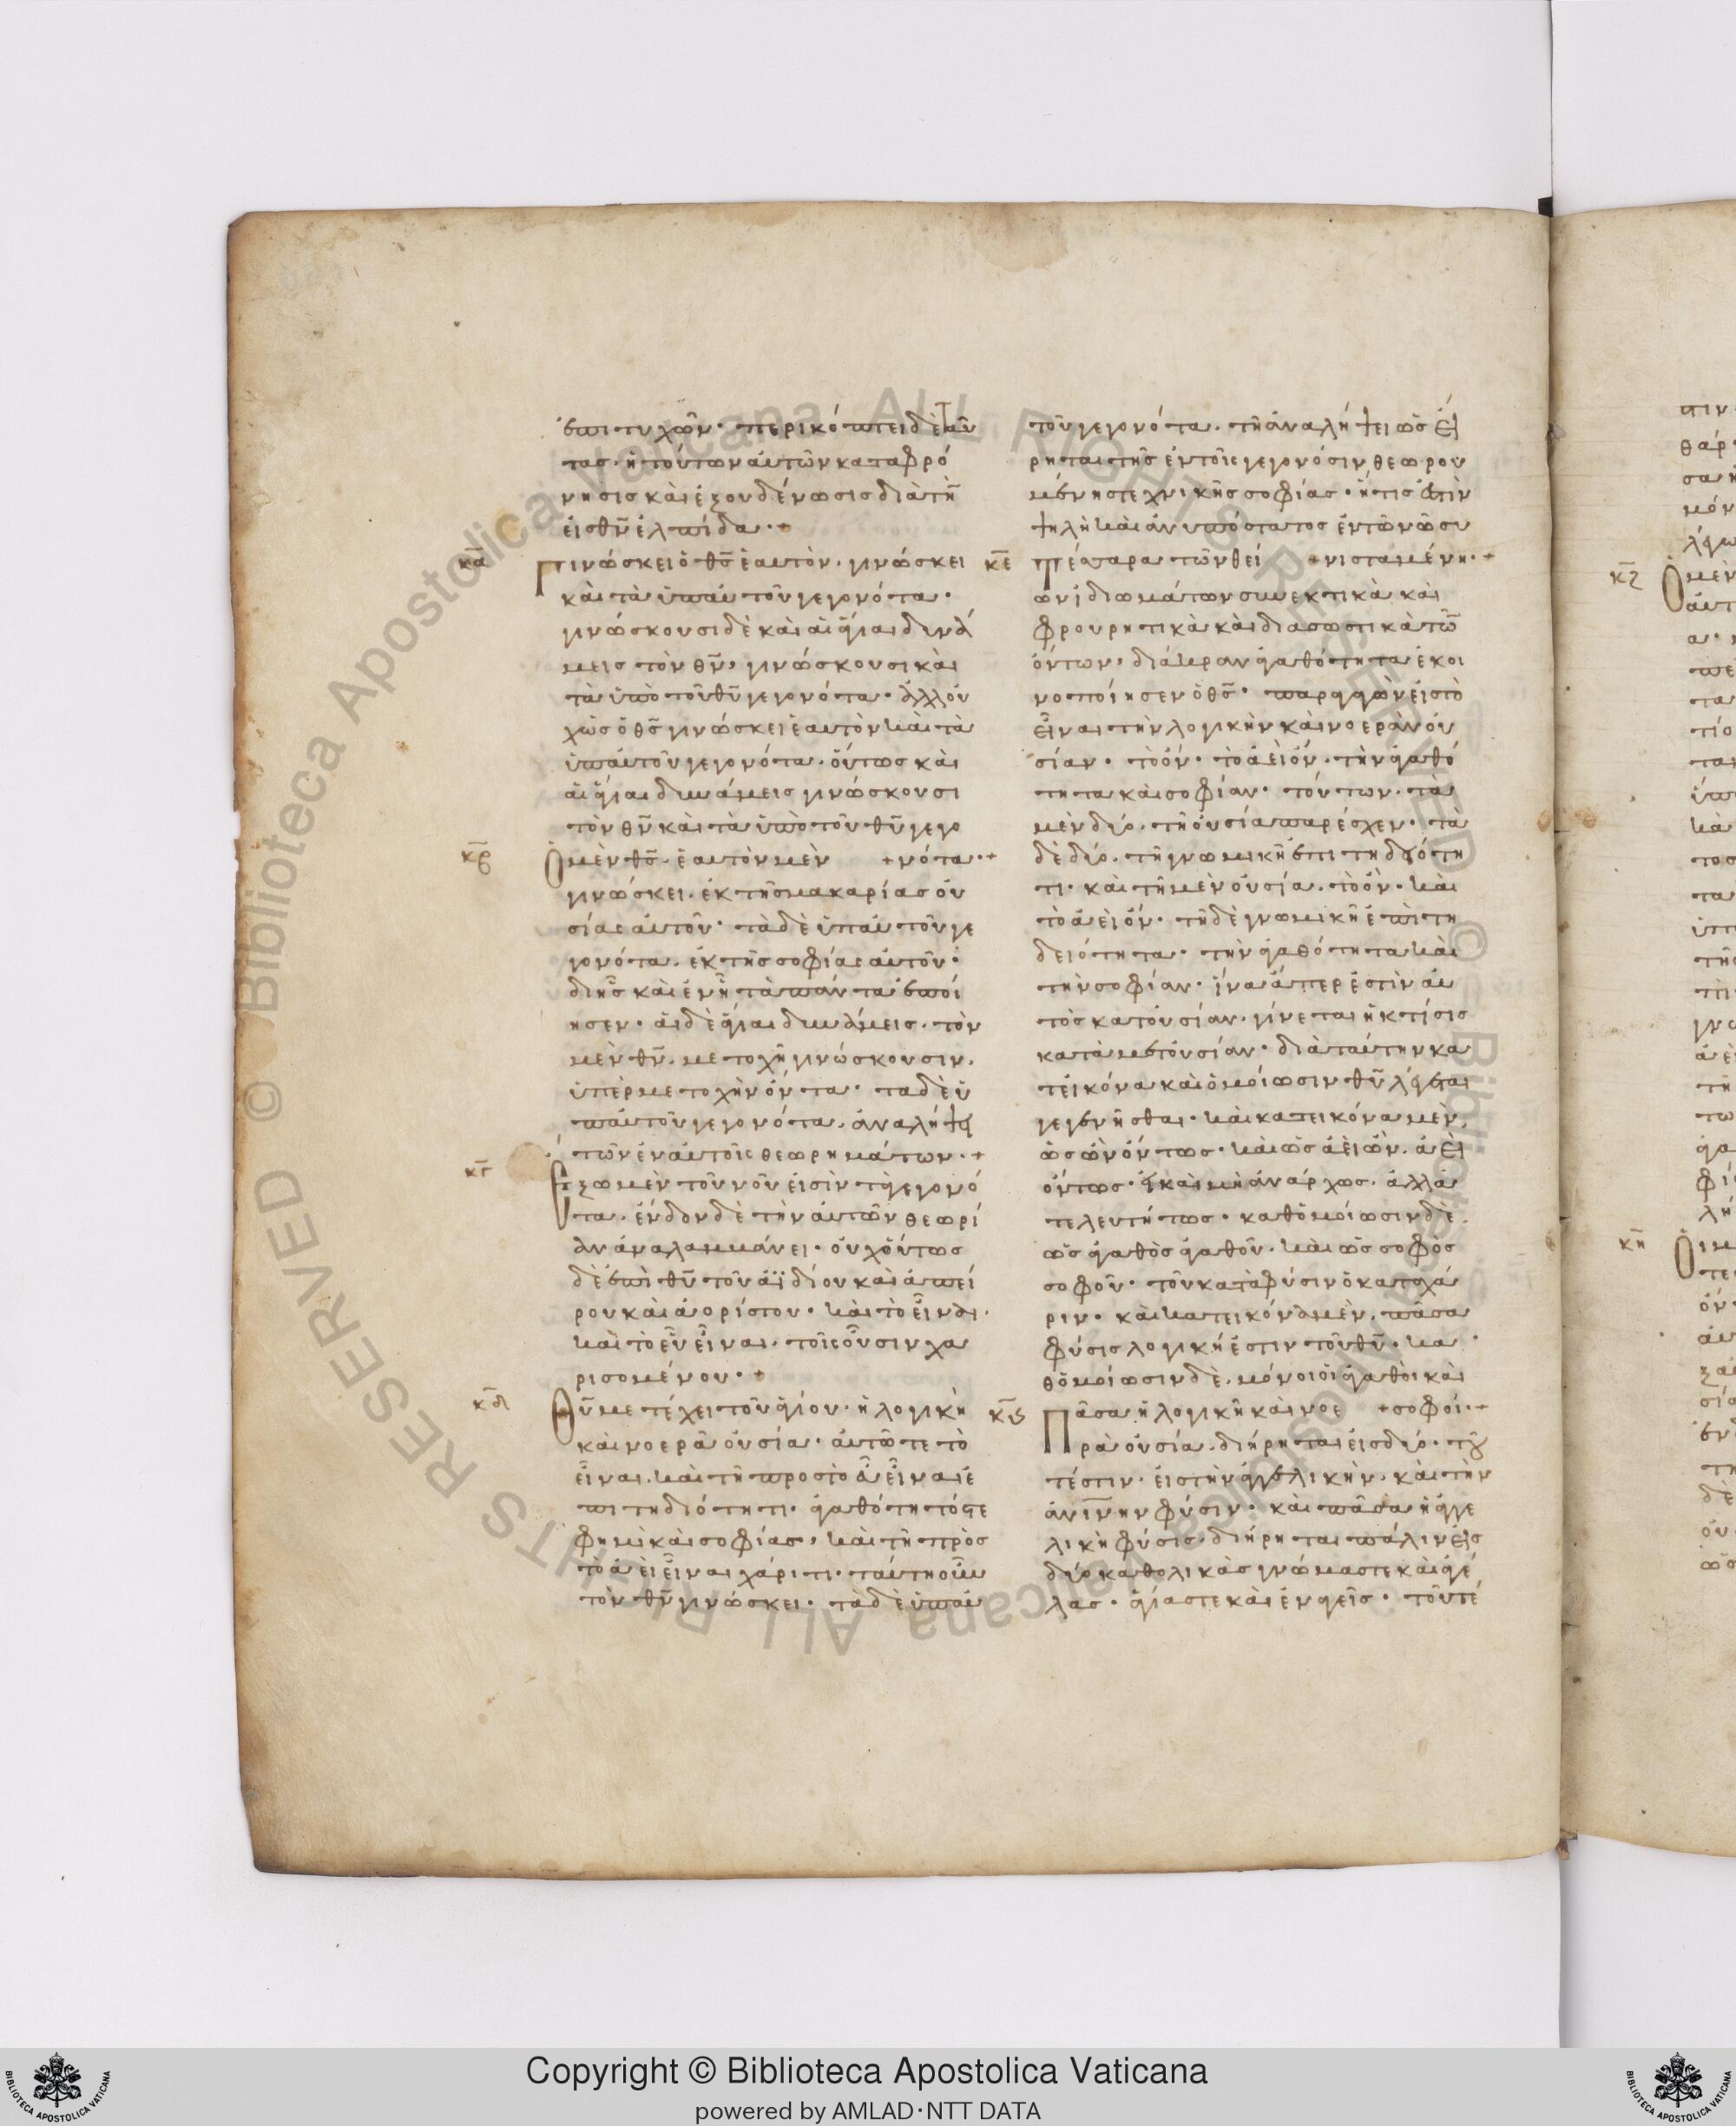 ἐπιτυχῶν· περικόπτει δὲ αὐ
τας· ἡ τούτων αὐτῶν καταφρό
νησις καὶ ἐξουδένωσις διὰ τὴν
εἰς θν̄ ἐλπίδα· +
κα Γινώσκει ὁ θς̄ ἑαυτὸν· γινώσκει
καὶ τὰ ὑπ αὐτοῦ γεγονότα·
γινώσκουσι δὲ καὶ αἱ ἅγιαι δυνά
μεις τὸν θν̄, γινώσκουσι καὶ
τὰ ὑπὸ τοῦ θῡ γεγονότα· ἀλλ οὐ
χ ὡς ὁ θς̄ γινώσκει ἑαυτὸν καὶ τὰ
ὑπ αὐτοῦ γεγονότα· οὕτως καὶ
αἱ ἅγιαι δυνάμεις γινώσκουσι
τὸν θν̄ καὶ τὰ ὑπὸ τοῦ θῡ γεγο
+ νότα· +
κβ Ὁ μὲν θς̄· ἑαυτὸν μὲν
γινώσκει· ἐκ τῆς μακαρίας οὐ
σίας αὐτοῦ· τὰ δὲ ὑπ αὐτοῦ γε
γονότα· ἐκ τῆς σοφίας αὐτοῦ·
δι ἧς καὶ ἐν ᾗ τὰ πάντα ἐποί
ησεν· αἱ δὲ ἅγιαι δυνάμεις· τὸν
μὲν θν̄· μετοχῇ γινώσκουσιν·
ὑπὲρ μετοχὴν ὄντα· τα δὲ ὑ
π αὐτοῦ γεγονότα· ἀναλήψει
τῶν ἐν αὐτοῖς θεωρημάτων· +
κγ Ἔξω μὲν τοῦ νοῦ εἰσὶν τὰ γεγονό
τα· ἔνδον δὲ τὴν αὐτῶν θεωρί
αν ἀναλαμμάνει· οὐχ οὕτως
δὲ ἐπὶ θῡ τοῦ ἀϊδίου καὶ ἀπεί
ρου καὶ ἀορίστου· καὶ τὸ εἶναι·
καὶ τὸ εὖ εἶναι· τοῖς οὖσιν χα
ρισομένου· +
κδ Θῡ μετέχει τοῦ ἁγίου· ἡ λογικὴ
καὶ νοερὰ οὐσία· αὐτῶ τε τὸ
εἶναι· καὶ τῆ προς τὸ ἀεὶ εἶναι ἐ
πιτηδιότητι· ἀγαθότητός τε
φημὶ καὶ σοφίας, καὶ τῆ πρὸς
τὸ ἀεὶ εἶναι χάριτι· ταύτη οὖν
τὸν θν̄ γινώσκει· τὰ δὲ ὑπ αὐ
τοῦ γεγονότα· τῆ ἀναλήψει ὡς εἴ
ρηται τῆς ἐν τοῖς γεγονόσιν θεωρου
μένης τεχνικῆς σοφίας· ἥτις ἐστὶν
ψιλὴ καὶ ἀνυπόστατος ἐν τῶ νῶ συ
+ νισταμένη· +
κε Τέσσαρα τῶν θεί
ων ἰδιωμάτων συνεκτικὰ καὶ
φρουρητικὰ καὶ διασωστικὰ τῶν
ὄντων, δι ἄκραν ἀγαθότητα ἐκοι
νοποίησεν ὁ θς̄· παραγαγὼν εἰς τὸ
εἶναι τὴν λογικὴν καὶ νοερὰν οὐ
σίαν· τὸ ὄν· τὸ ἀεὶ ὄν· τὴν ἀγαθό
τητα καὶ σοφίαν· τούτων· τὰ
μὲν δύο· τῆ οὐσία παρέσχεν· τὰ
δὲ δύο· τῆ γνωμικῆ ἐπιτηδιότη
τι· καὶ τῆ μὲν οὐσία· τὸ ὂν· καὶ
τὸ ἀεὶ ὄν· τῆ δὲ γνωμικῆ ἐπιτη
δειότητα· τὴν ἀγαθότητα καὶ
τὴν σοφίαν· ἵνα ἅπερ ἐστὶν αὐ
τὸς κατ οὐσίαν· γίνεται ἡ κτίσις
κατὰ μετουσίαν· διὰ ταύτην κα
τ εἰκόνα καὶ ὁμοίωσιν θῡ λέγεται
γεγενῆσθαι· καὶ κατ εἰκόνα μὲν·
ὡς ὢν ὄντως· καὶ ὡς ἀεὶ ὢν· ἀεὶ
ὄντως· εἰ καὶ μὴ ἀνάρχως· ἀλλ ἀ
τελευτήτως· καθ ὁμοίωσιν δὲ·
ὡς ἀγαθὸς ἀγαθοῦ· καὶ ὡς σοφὸς
σοφοῦ· τοῦ κατὰ φύσιν ὁ κατα χά
ριν· καὶ κατ εικόνα μὲν· πᾶσα
φύσις λογική ἐστιν τοῦ θῡ· κα
θ ὁμοίωσιν δὲ· μόνοι οἱ ἀγαθοὶ καὶ
+ σοφοί· +
κς Πᾶσα ἡ λογικὴ καὶ νοε
ρὰ οὐσία· διήρηται εἰς δύο· του
τέστιν· εἰς τὴν ἀγγελικὴν· καὶ τὴν
ἀνίνην φύσιν· καὶ πᾶσα ἡ ἀγγε
λικὴ φύσις· διήρηται πάλιν εἰς
δύο καθολικὰς γνώμας τε καὶ ἀγέ
λας· ἁγίας τε καὶ ἐναγεῖς· τουτέ
κζ
κη